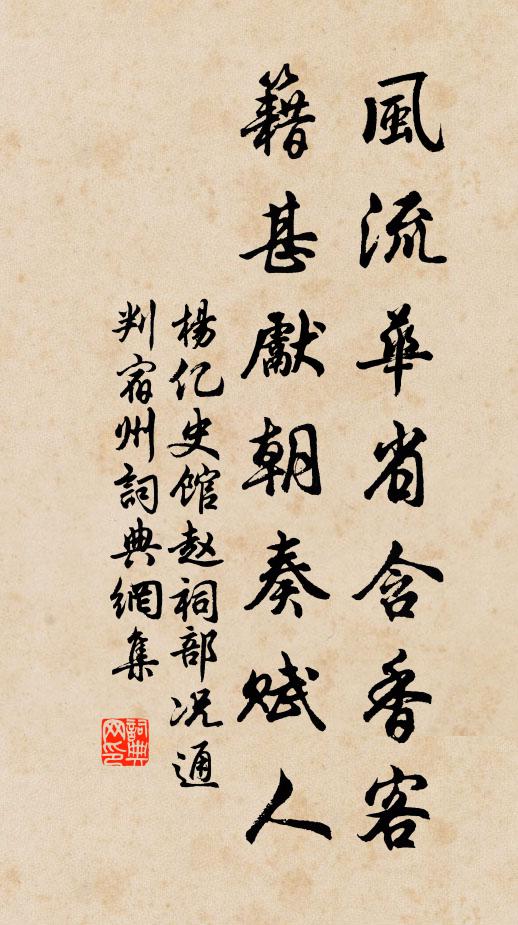 風流華省含香客
籍甚獻朝奏賦人
楊亿史館赵祠部况通
判宿州詞典網集
詞典网印